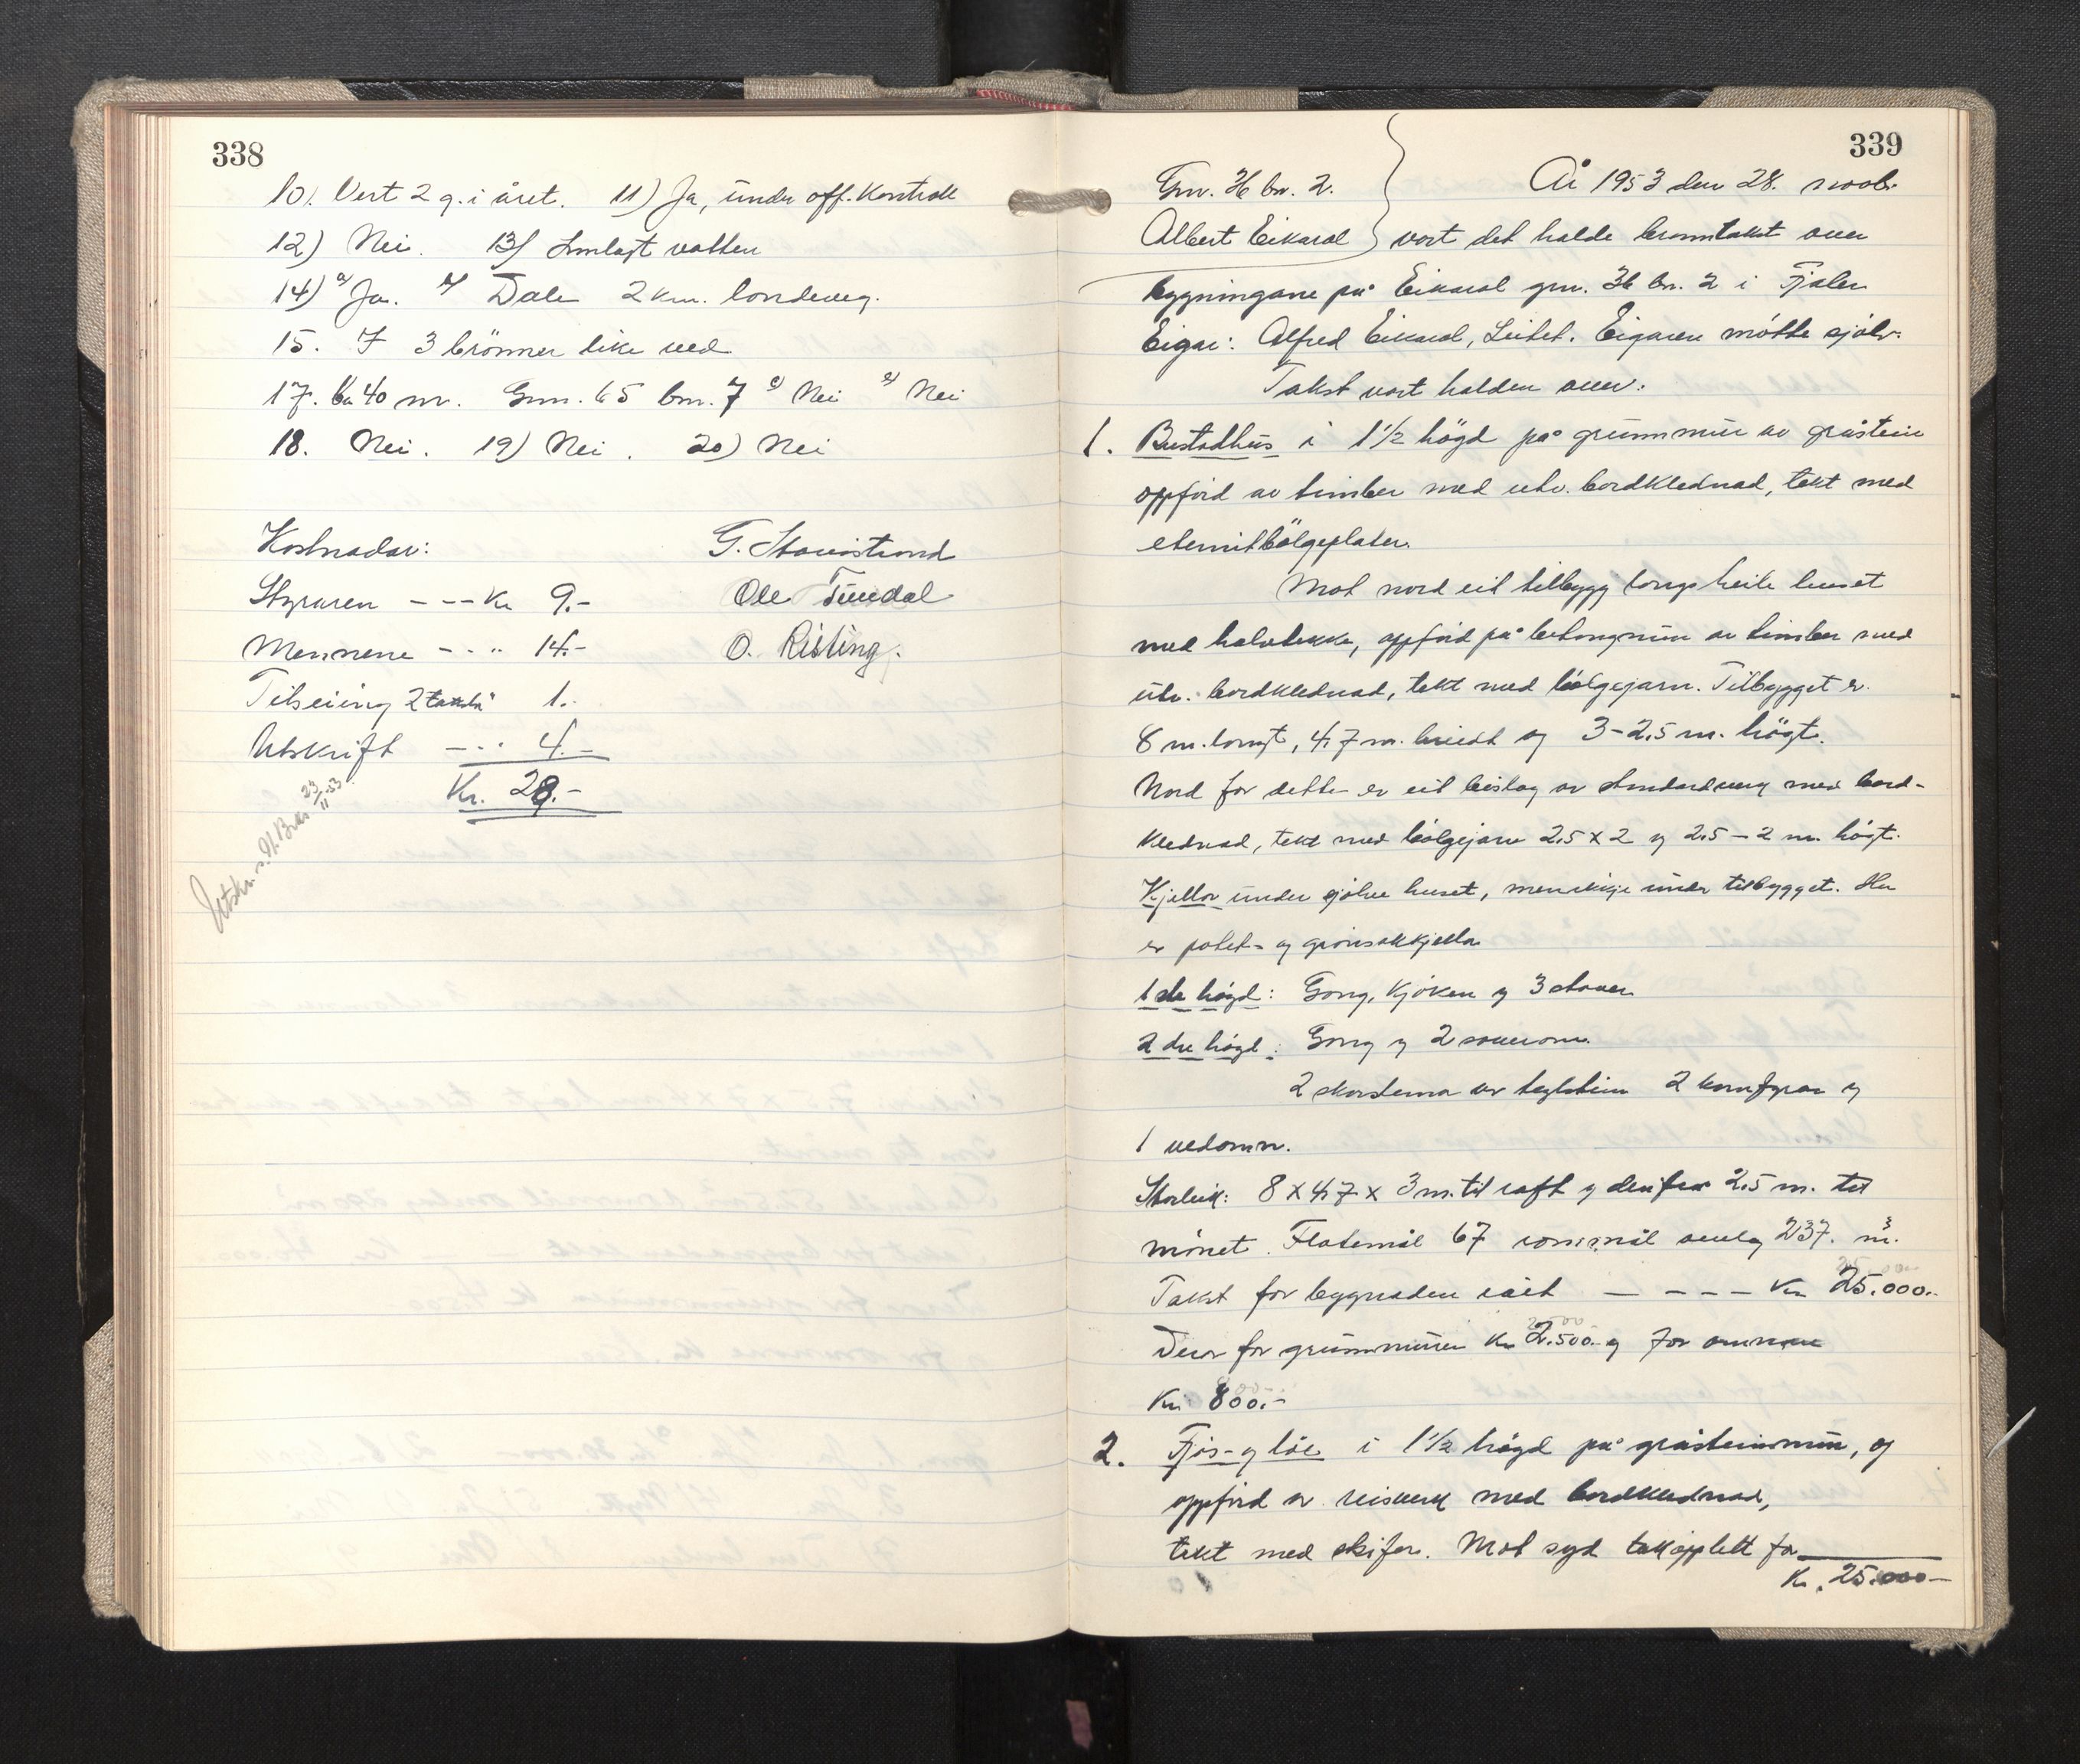 338
10). Vert 2 g. i året. 11) Ja, under off. kontroll
12) Nei. 13) Innlagt vatten
14) a) Ja. b) Dale 2 km. landeveg.
15. I 3 brönner like ved
17. Ca 40 m. Gnr. 65 bnr. 7 c) Nei e) Nei
18. Nei. 19) Nei. 20) Nei
Kostnadar:
Styraren --- Kr 9.-
Mennene - - " 14.-
Tilseiing 2 takstm 1.-
Utskrift - - - 4.-
Kr. 28.-
Utskr. s. N. Br.k. 23/11-53.
G. Stavistrand
Ole Tundal
O. Risting.
339
Gnr. 36 bnr. 2.
Albert Eikaval
År 1953 den 28. novbr.
vart det halde branntakst over
bygningane på Eikaval gnr. 36 bnr. 2 i Fjaler
Eigar: Alfred Eikaval, Leitet. Eigaren møtte sjølv.
Takst vart halden over:
1. Bustadhus i 1 1/2 högd på grunnmur av gråstein
oppförd av timber med utv. bordklednad, tekt med
eternitbölgeplater.
Mot nord eit tilbygg langs heile huset
med halvtekke, oppförd på betongmur av timber med
utv. bordklednad, tekt med bölgejarn. Tilbygget er
8 m. langt, 4,7 m. breidt og 3-2,5 m. högt.
Nord for dette er eit bislag av standardverk med bord-
klednad, tekt med bölgejarn 2,5 x 2 og 2,5 - 2 m. högt.
Kjellar under sjölve huset, men ikkje under tilbygget. Her
er potet- og grönsakkjellar
1ste högd: Gang, kjöken og 3 stover
2dre högd: Gang og 2 soverom.
2 skorsteinar av teglstein 2 komfyrar og
1 vedomn.
Storleik: 8 x 4,7 x 3 m. til raft og derifrå 2,5 m. til
mönet. Flatemål 67 rommål omlag 237. m³.
Takst for bygnaden i alt - - - - Kr 25.000.-
Derav for grunnmuren Kr 2.500.- og for omnane
Kr. 800.-
2. Fjös- og löe i 1 1/2 högd på gråsteinsmur, og
oppförd av reisverk med bordklednad,
tekt med skifer. Mot syd takopplett for
Kr. 25.000-